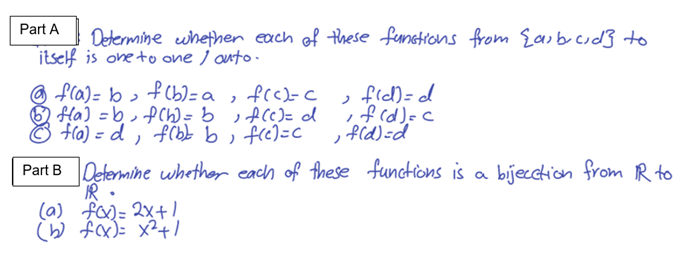 Part A
: Determine whether each of these functions from {a,b,c,d} to
itself is one to one / onto.
(a) f(a)= b, f(b)=a, f(c)=c, f(d)=d
(b) f(a)=b, f(b)=b, f(c)=d, f(d)=c
(c) f(a)=d, f(b)=b, f(c)=c, f(d)=d
Part B
Determine whether each of these functions is a bijecction from ℝ to
ℝ.
(a) f(x)= 2x+1
(b) f(x)= x²+1